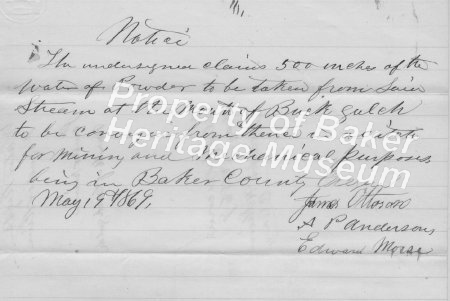 Notice
The undersigned claims 500 inches of the
water of Powder to be taken from Said
Stream at the Mouth of Buck gulch
to be conveyed from thence in ditch
for mining and Mechanical Purposes
being in Baker County
May 19th 1869,
James Ottoson
A P Anderson
Edward Morse
Property of Baker
Heritage Museum